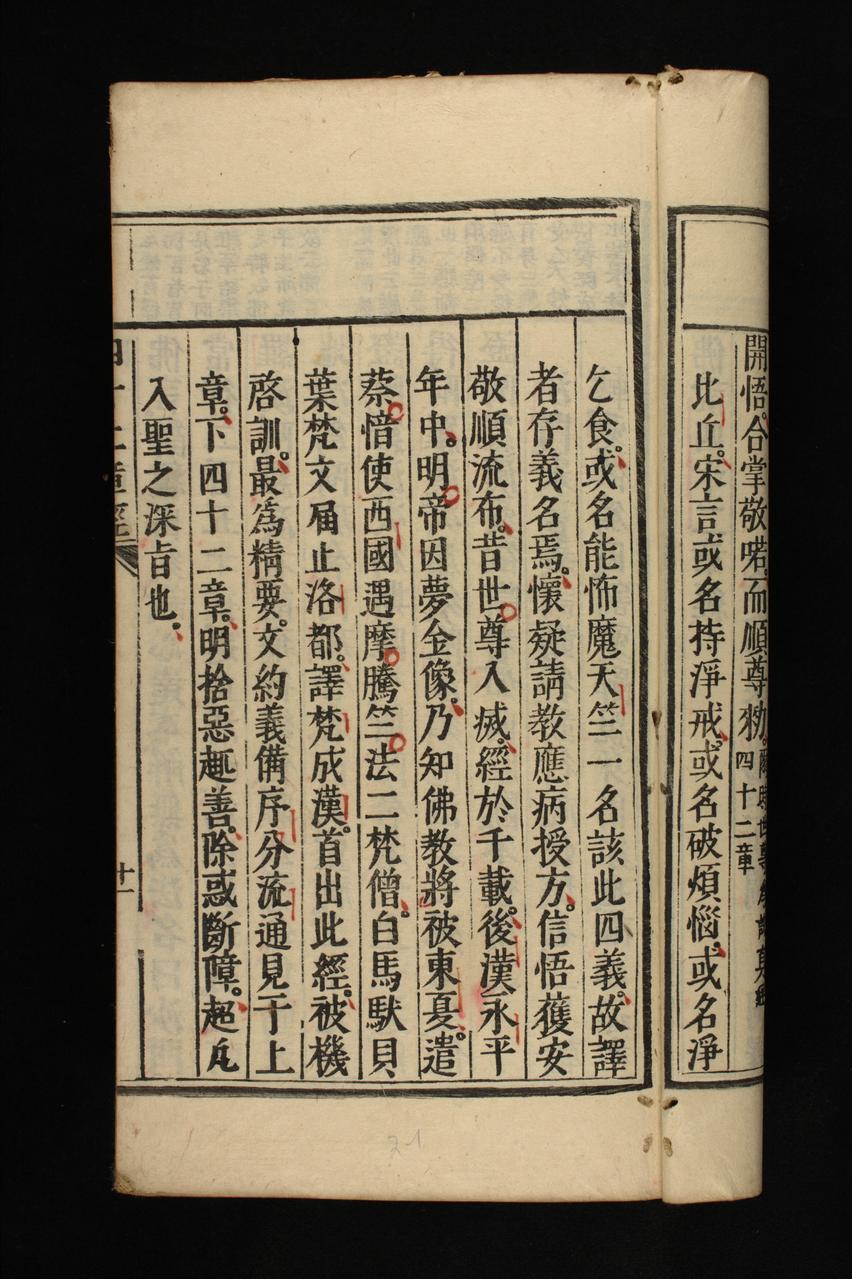 開悟。合掌敬喏。而順尊勑。
四十二章
比丘。宋言或名持淨戒。或名破煩惱。或名淨
乞食。或名能怖魔天竺一名該此四義。故譯
者存義名焉。懷疑請教應病授方。信悟獲安
敬順流布。昔世尊入滅。經於千載。後漢永平
年中。明帝因夢金像。乃知佛教將被東夏。遣
蔡愔使西國遇摩騰竺法二梵僧。白馬馱貝
葉梵文届止洛都。譯梵成漢。首出此經。被機
啓訓。最爲精要。文約義備序分流通見于上
章。下四十二章。明捨惡趣善。除惑斷障。超凡
入聖之深旨也。
四十二章經
十一
21